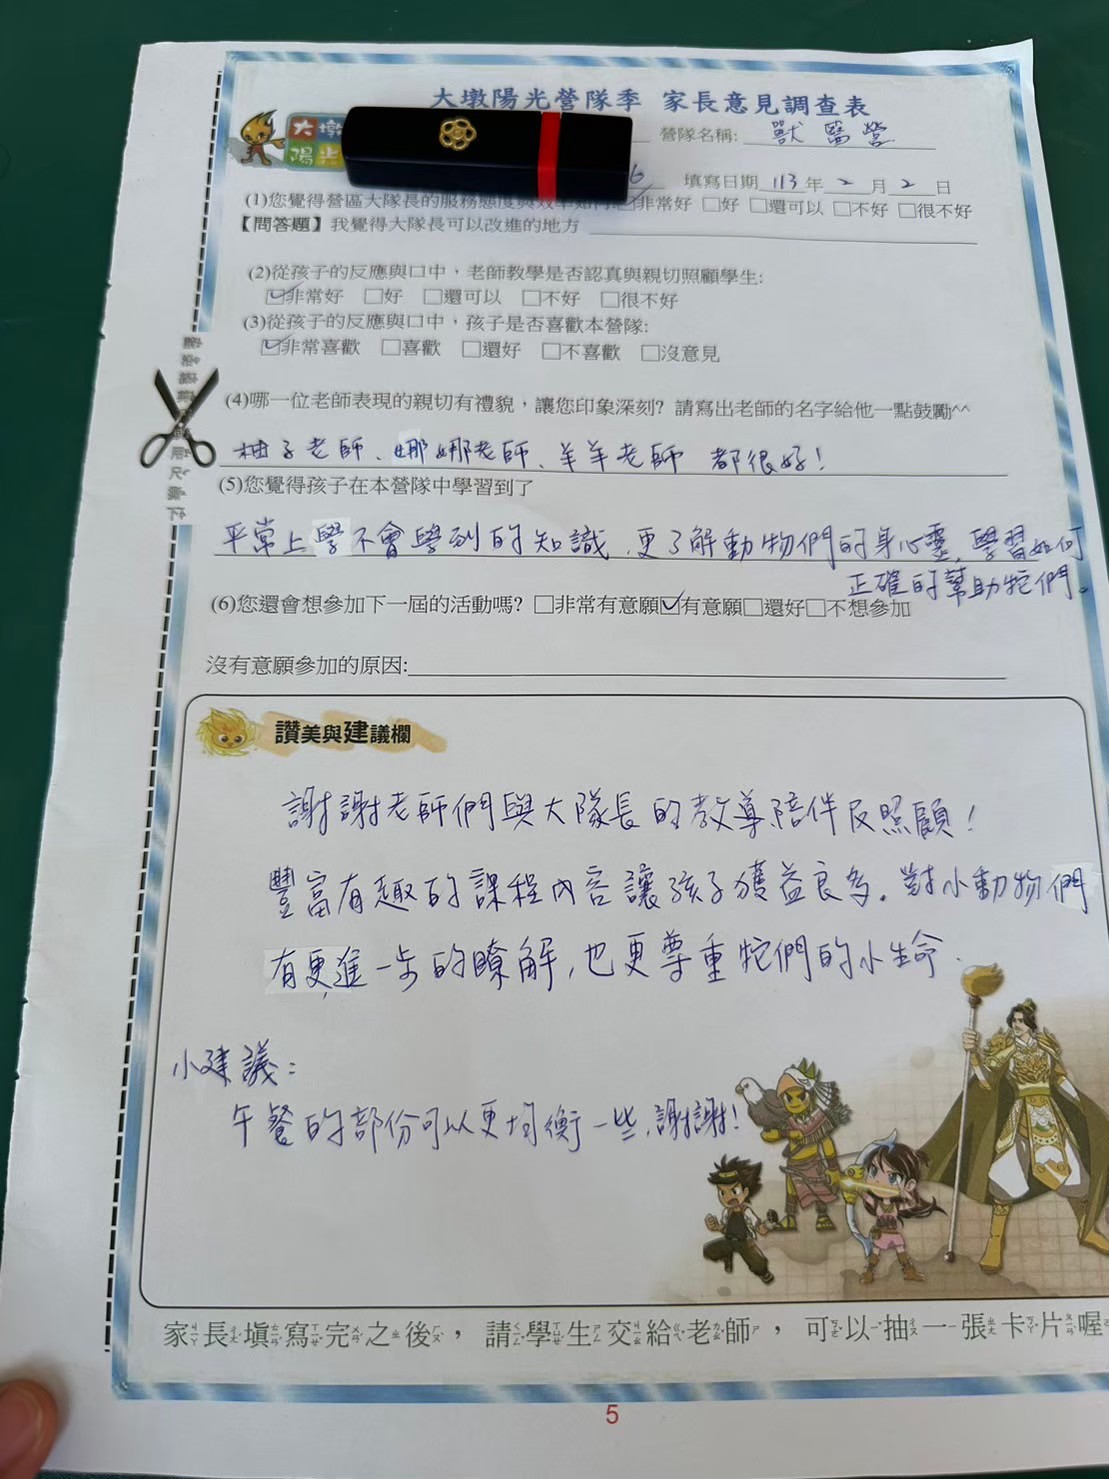 大墩陽光營隊季 家長意見調查表
大墩
陽光
營隊名稱: 獸醫營
6 填寫日期 113 年 2 月 2 日
(1)您覺得營區大隊長的服務態度與效率如何 ☑非常好 □好 □還可以 □不好 □很不好
【問答題】我覺得大隊長可以改進的地方
(2)從孩子的反應與口中，老師教學是否認真與親切照顧學生:
☑非常好 □好 □還可以 □不好 □很不好
(3)從孩子的反應與口中，孩子是否喜歡本營隊:
☑非常喜歡 □喜歡 □還好 □不喜歡 □沒意見
(4)哪一位老師表現的親切有禮貌，讓您印象深刻? 請寫出老師的名字給他一點鼓勵^^
柚子老師、娜娜老師、羊羊老師 都很好!
(5)您覺得孩子在本營隊中學習到了
平常上學不會學到的知識,更了解動物們的身心靈,學習如何
正確的幫助牠們。
(6)您還會想參加下一屆的活動嗎? □非常有意願☑有意願□還好□不想參加
沒有意願參加的原因:
讚美與建議欄
謝謝老師們與大隊長的教導陪伴及照顧!
豐富有趣的課程內容讓孩子獲益良多。對小動物們
有更進一步的瞭解,也更尊重牠們的小生命.
小建議:
午餐的部份可以更均衡一些,謝謝!
家長填寫完之後，請學生交給老師，可以抽一張卡片喔
5